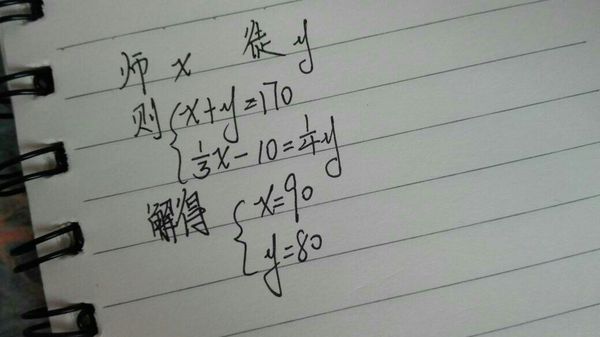 师 x 徒 y
则 { x+y=170
{ 1/3x-10=1/4y
解得 { x=90
{ y=80